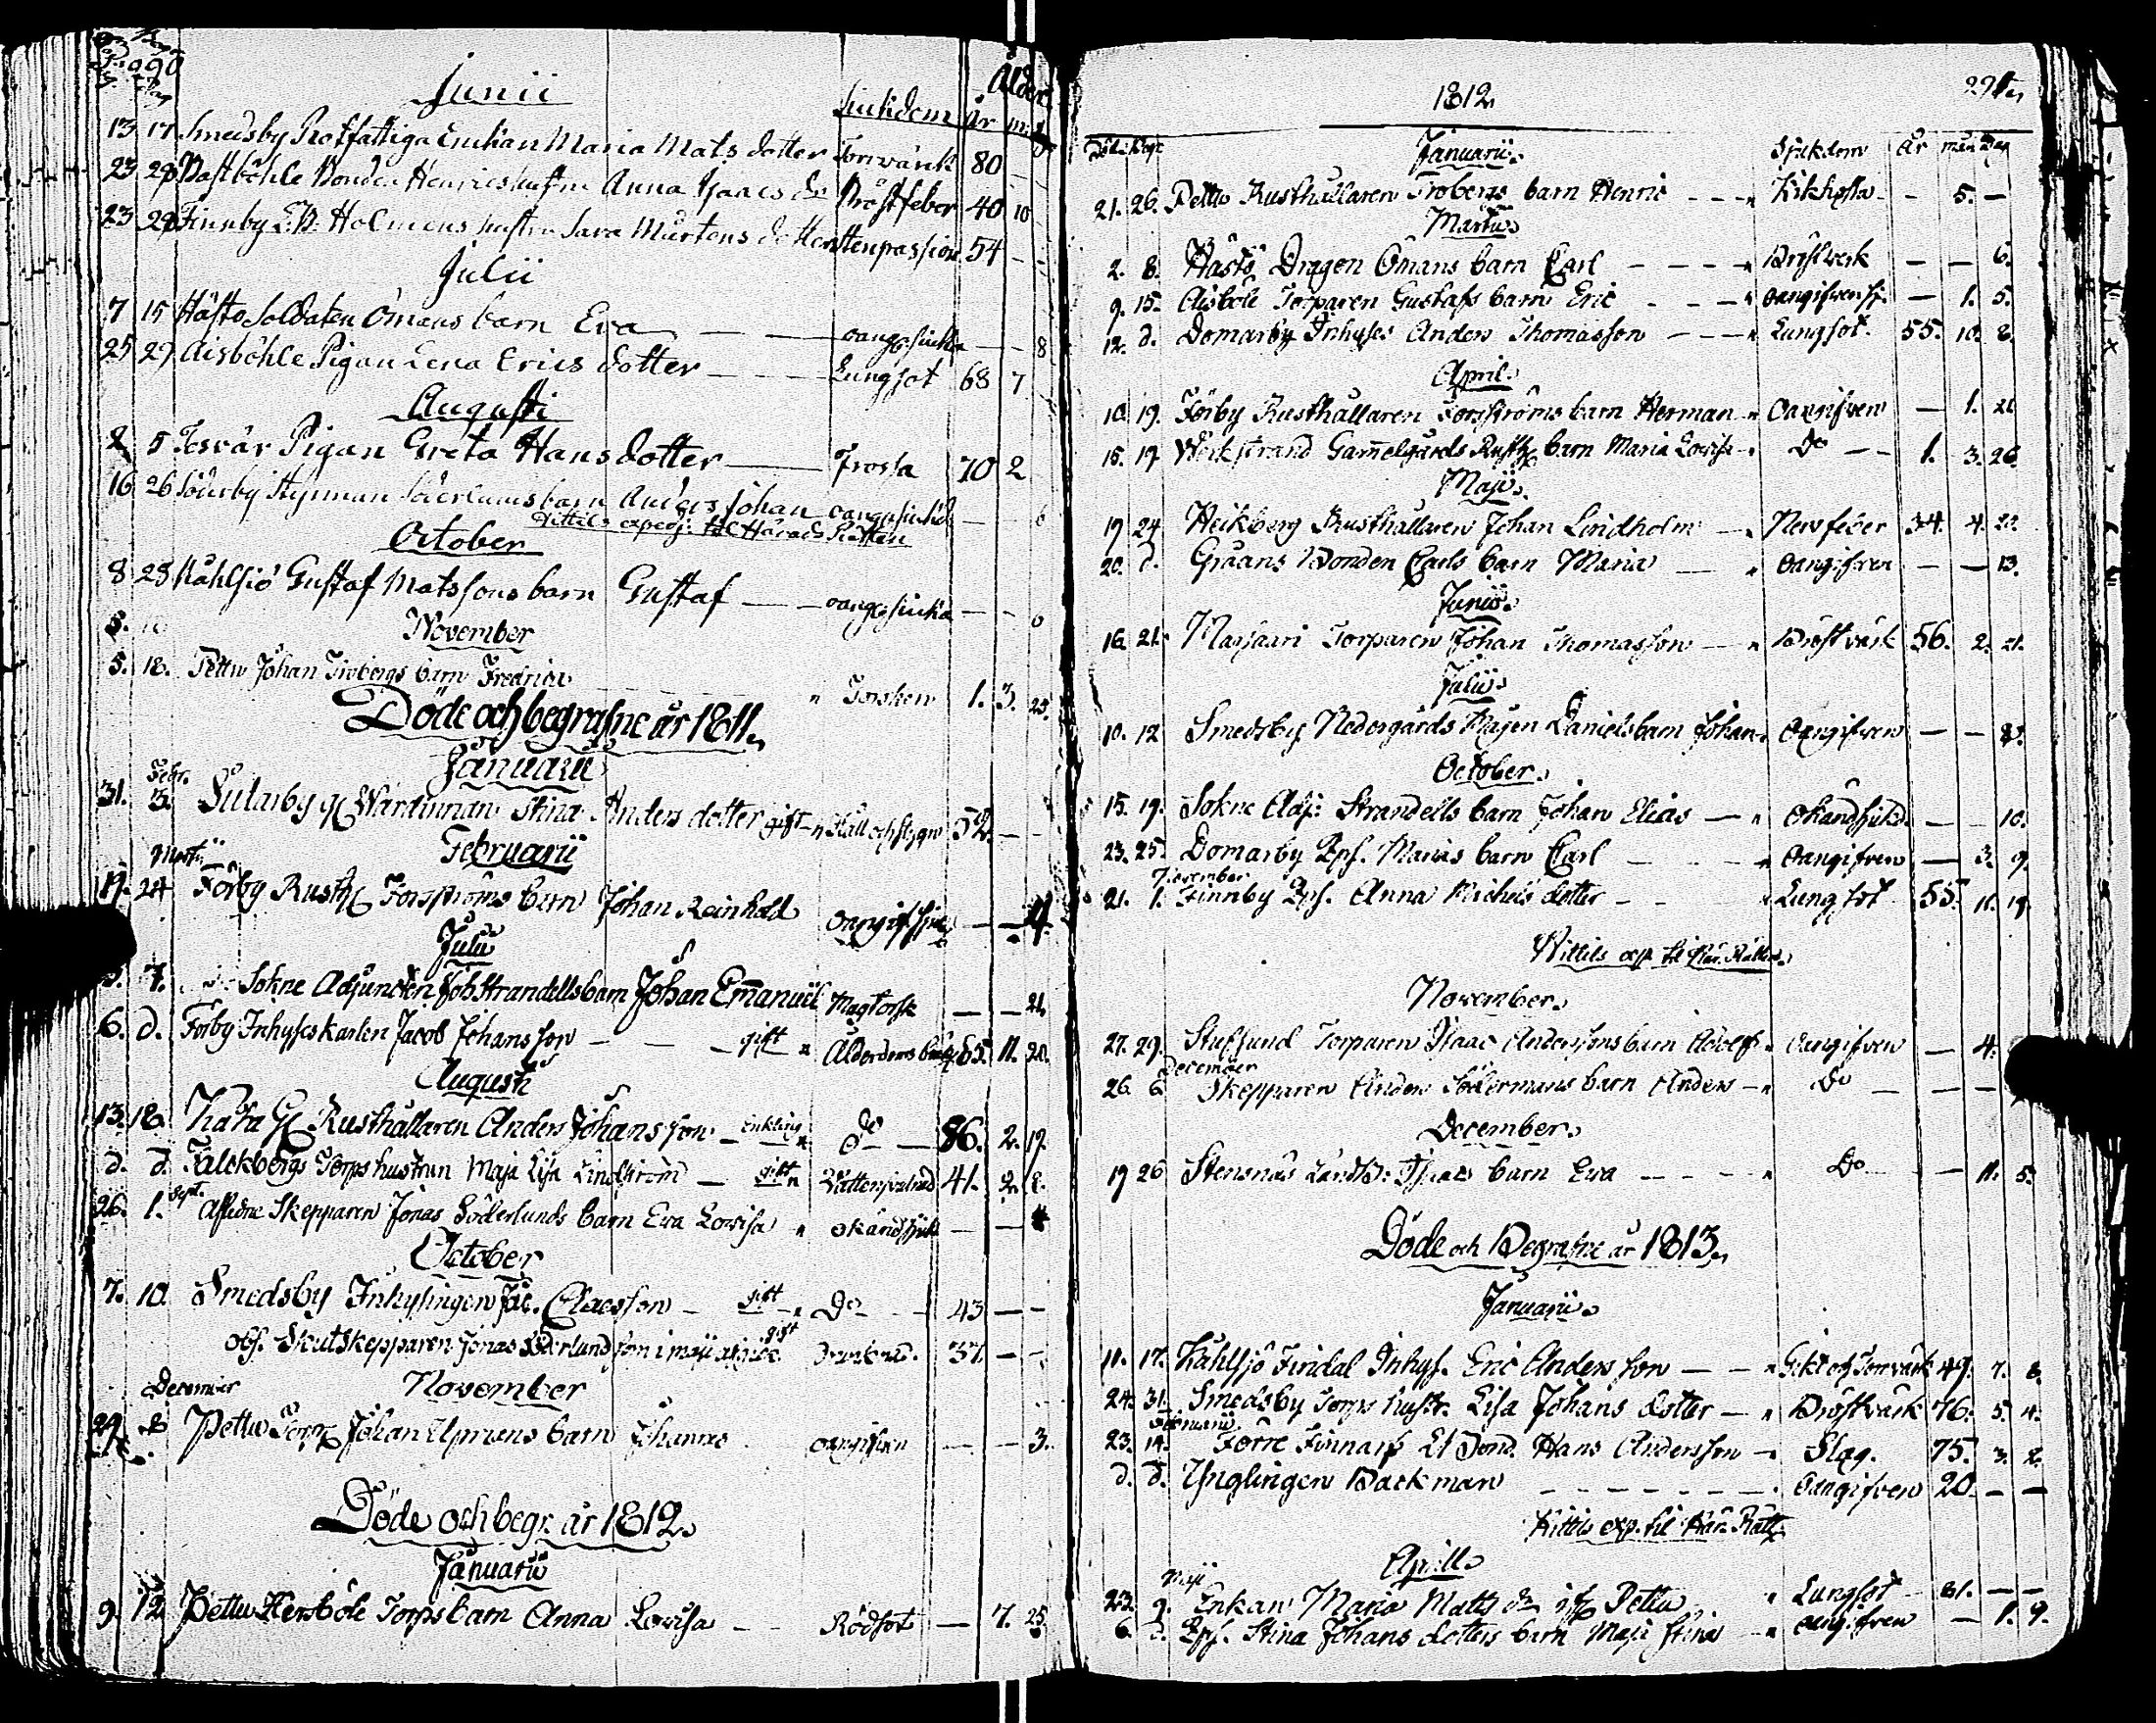 290
Junii
Siukdom År m: Ålder
13 17 Smedsby Rotfattiga Enkian Maria Mats dotter Torrvärk 80 - -
23 29 Bastböhle Bonden Henrics hustru Anna Isaacs dr Bröstfeber 40 10
23 29 Finnby Holmens hustru Sara Mårtens dotter Stenpassion 54 - -
Julii
7 15 Hästö Soldaten Ömans barn Eva — — oang. siukd — - 8
25 29 Aisböhle Pigan Lena Erics dotter — — Lungsot 68 7
Augusti
2 5 Tesvär Pigan Greta Hans dotter — Frossa 70 2
16 26 Söderby Styrman Söderlunds barn Anders Johan oang. siukd — - 6
Hittils exped: til Härads Rätten
October
8 28 Kåhlsjö Gustaf Matssons barn Gustaf — — oang. siukd — - 6
November
5. 18. Pettu Johan Frobergs barn Fredrica " Torsken 1. 3. 25.
Döde och begrafne år 1811.
Januarii
31. Febr. 3. Sutarby Wärdinnan Stina Anders dotter gift " Håll och stygn 52. — -
Februarii
19. Martii 24 Förby Rusth Forsströms barn Johan Reinhold oangif. sjuk — — 4.
Julii
5. 7. Sokne Adjuncten Joh Strandells barn Johan Emanuel Magtorsk — — 21.
6. d. Förby Inhyseskarlen Jacob Johansson - - gift " Ålderdoms 65. 11. 20.
Augusti
13. 18. Rusthållaren Anders Johansson — Enkling " do — 86. 2. 19.
d. d. Falckbergs Torps hustrun Maja Lisa Lindström — gift " Vattensiuka 41. 2. 8.
26. 1. Sept. Aflidne Skepparen Jonas Söderlunds barn Eva Lovisa " okänd sjuk — — 4
October
7. 10. Smedsby Inhysingen Jac. Claesson — gift " Do — 43 — -
obs. Skutskepparen Jonas Söderlund som i maji gift Drunknad. 37. — -
November
29. December 8 Pettu Torp Johan barn Johannes oangifven — — 3.
Döde och begr. år 1812.
Januarii
9. 12 Pettu Hersböle Torps barn Anna Lovisa — Rödsot — 7. 25.
1812. 291.
Januarii. Sjukdom År mån Dag
21. 26. Pettu Rusthållaren Frobergs barn Henric - - " Kikhosta - - 5. —
Martii.
2. 8. Hästö Dragon Ömans barn Carl - - - " Bröstverk — — 6.
9. 15. Aisböle Torparen Gustafs barn Eric - - - " oangifven sj. — 1. 5.
12. d. Domarby Inhyses Anders Thomasson - - - " Lungsot. 55. 10. 8.
April.
10. 19. Förby Rusthållaren Forsströms barn Herman " Oangifven — 1. 21.
15. 19. Wikstrand Gammelgårds Rusth barn Maria Lovisa " Do — 1. 3. 26.
Maji.
19 24 Heikberg Rusthållaren Johan Lindholm — " Nervfeber 34. 4. 20.
20. d. Graans Bonden Carls barn Maria — " Oangifven — — 13.
Junii.
16. 21. Matsaari Torparen Johan Thomasson — " Bröstvärk 56. 2. 21.
Julii.
10. 12 Smedsby Nedergårds Majen Daniels barn Johan " Oangifven — — 8.
October.
15. 19. Sokne Adj: Strandells barn Johan Elias — " Okänd sjukd. — — 10.
23. 25. Domarby Marias barn Carl — " Oangifven — 3. 9.
21. November 1. Finnby Anna Michels dotter - - " Lungsot 55. 11. 19.
Hittils exp. til Här. Rätten.
November.
27. 29. Stusslund Torparen Isaac Anderssons barn Adolf " Oangifven — 4.
26. December 6. Skepparen Anders Södermans barn Anders — " Do — — —
December.
19 26 Stensnäs Isacs barn Eva — - - " Do — — 11. 5.
Döde och Begrafne år 1813.
Januarii.
11. 17. Kåhlsjö Findal Inhys. Eric Andersson — — " Gikt och Torrvärk 49. 7. 8.
24. 31. Smedsby Torps hustr. Lisa Johans dotter — " Bröstvärk 76. 5. 4.
23. Februarii 14. Förre Hans Andersson — " Slag. 75. 3. 2.
d. d. Ynglingen Backman - - - - " Oangifven 20. — —
Hittils exp. til Här. Rätt.
Aprill.
23. Maji 9. Enkan Maria Matts dr Pettu " Lungsot 81. — —
6. d. Stina Johans dotters barn Maja Stina — " oangifven — 1. 9.